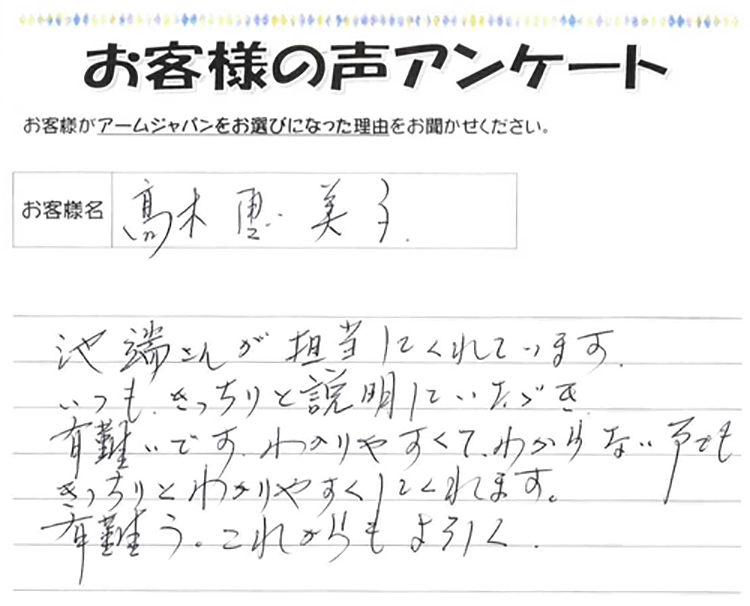 お客様の声アンケート
お客様がアームジャパンをお選びになった理由をお聞かせください。
お客様名 髙木 恵美子.
池端さんが担当してくれています.
いつも.きっちりと説明していただき.
有難いです.わかりやすくて.わからない事でも
きっちりとわかりやすくしてくれます。
有難う。これからもよろしく.